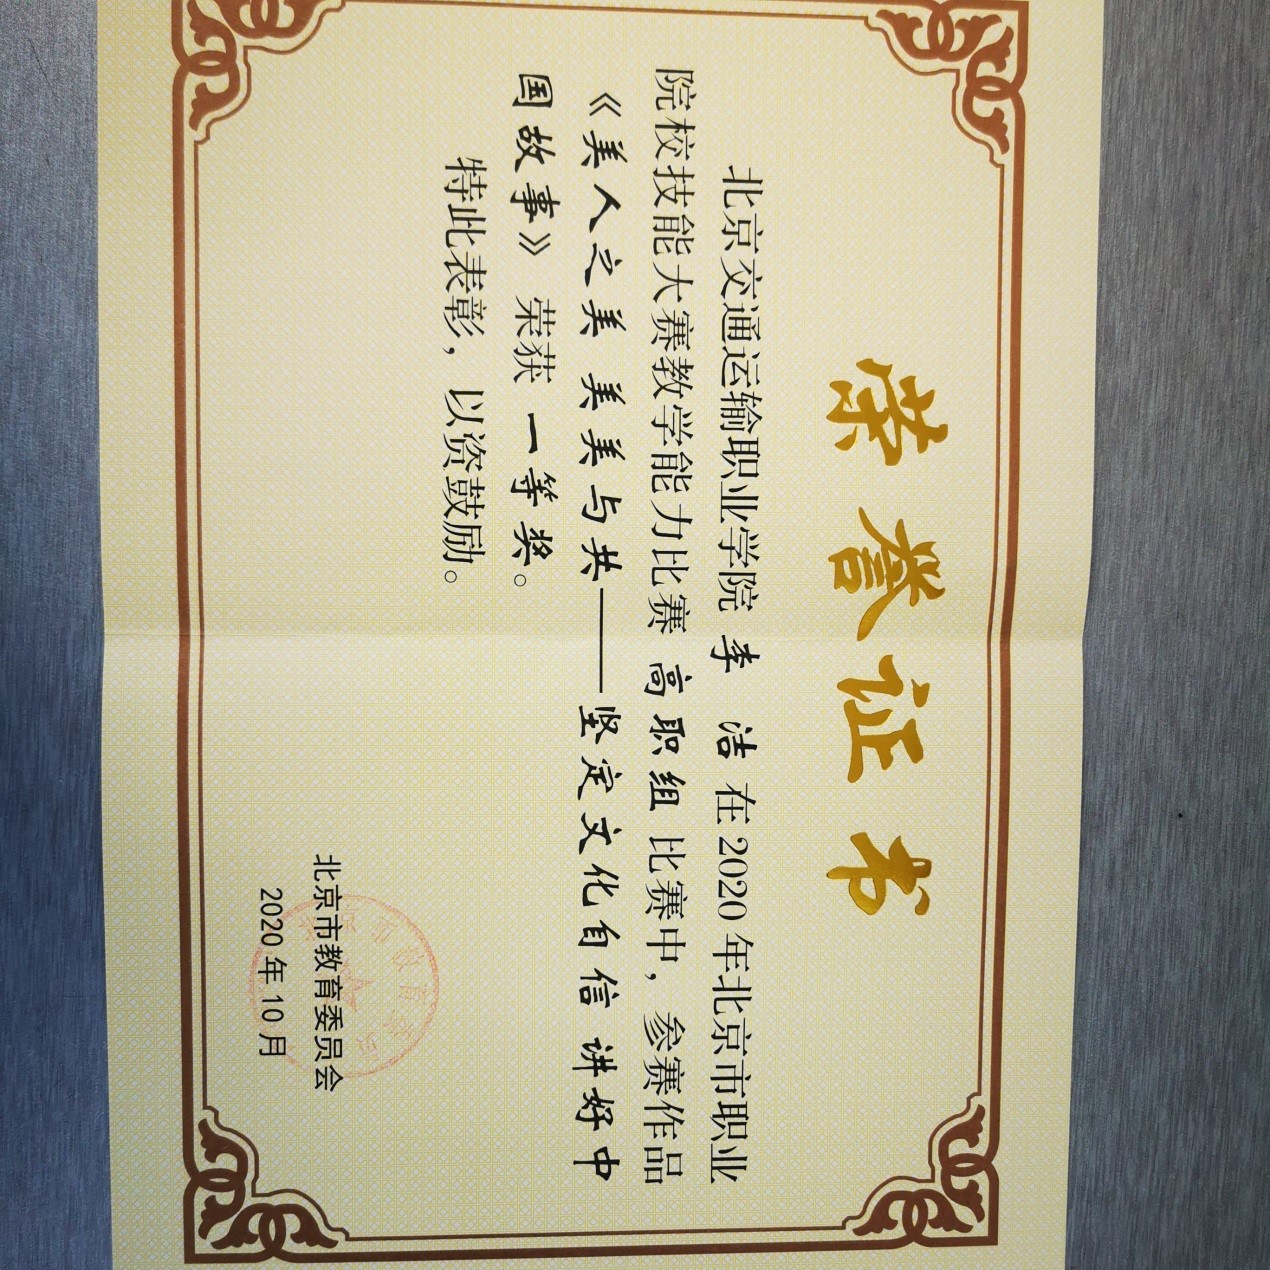 荣誉证书
北京交通运输职业学院 李 洁 在 2020 年北京市职业
院校技能大赛教学能力比赛 高职组 比赛中，参赛作品
《美人之美 美美与共——坚定文化自信 讲好中
国故事》 荣获 一等奖。
特此表彰，以资鼓励。
北京市教育委员会
2020 年 10 月